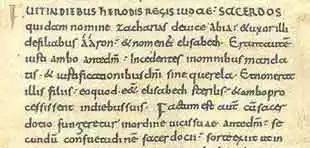 FUIT IN DIEBUS HERODIS REGIS IUDAE· SACERDOS
quidam nomine zacharias de uice abia· & uxor illi
de filiabus aaron· & nomen ei elisabeth· Erant autem
iusti ambo ante dm̄· Incedentes in omnibus manda
tis· & iustificationibus dn̄i sine querela· Et non erat
illis filius· eo quod e&& elisabeth sterilis· & ambo pro
cessissent in diebus suis· Factum est aut̄ cū sacer
dotio fungeretur in ordine uicis suae ante dm̄· se
cundū consuetudinē sacerdotii· sorte exiit ut in